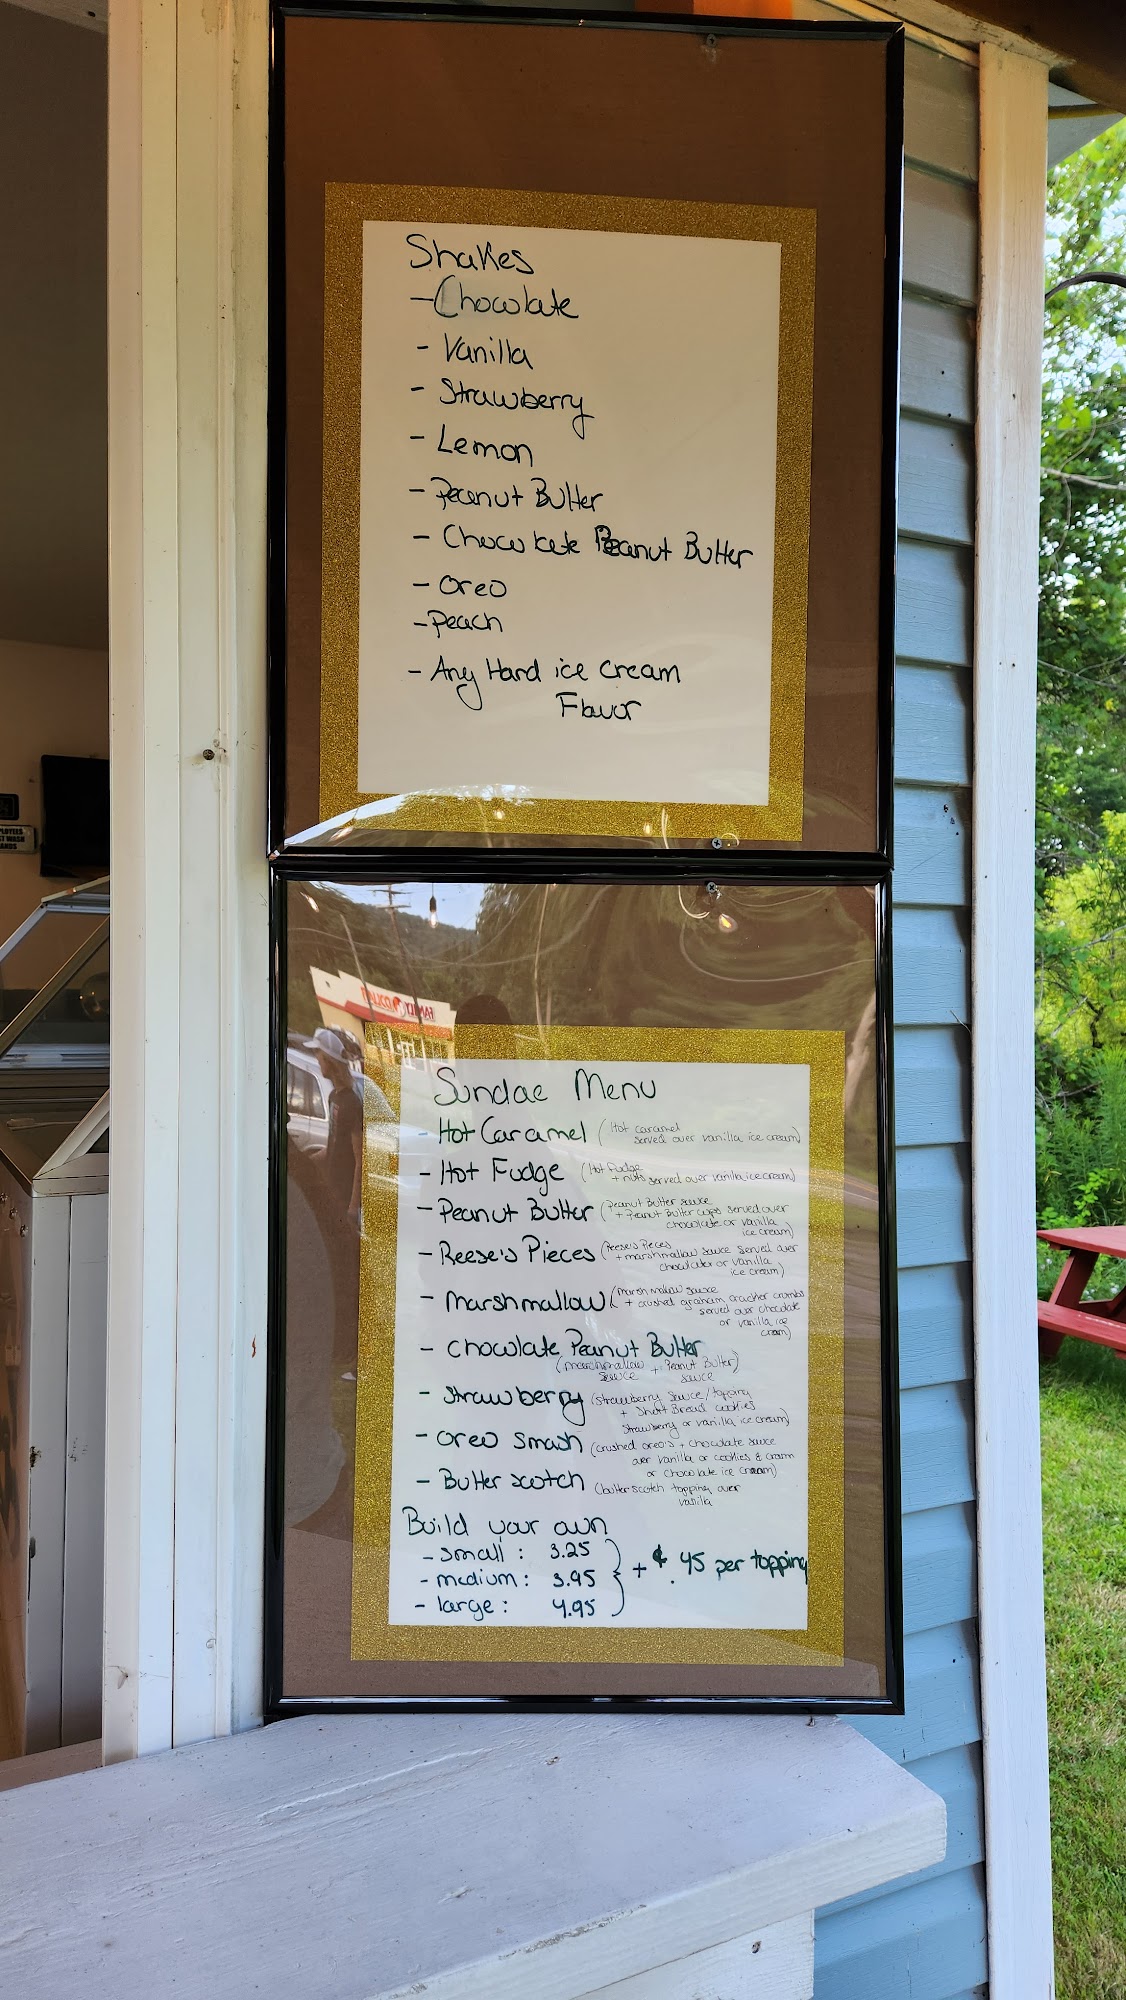 Shakes
- Chocolate
- Vanilla
- Strawberry
- Lemon
- Peanut Butter
- Chocolate Peanut Butter
- Oreo
- Peach
- Any Hard ice cream
Flavor
Sundae Menu
- Hot Caramel (Hot caramel
served over vanilla ice cream)
- Hot Fudge (Hot Fudge
+ nuts served over vanilla ice cream)
- Peanut Butter (Peanut Butter sauce
+ Peanut Butter cups served over
chocolate or vanilla
ice cream)
- Reese's Pieces (Reese's Pieces
+ marshmallow sauce served over
chocolate or vanilla
ice cream)
- Marshmallow (marshmallow sauce
+ crushed graham cracker crumbs
served over chocolate
or vanilla ice
cream)
- Chocolate Peanut Butter
(marshmallow + Peanut Butter)
sauce sauce
- Strawberry (strawberry sauce/topping
+ Short Bread cookies
Strawberry or vanilla ice cream)
- Oreo Smash (crushed oreo's + chocolate sauce
over vanilla or cookies & cream
or chocolate ice cream)
- Butter scotch (butterscotch topping over
vanilla
Build your own
- small : 3.25
- medium : 3.95 } + ¢ .45 per topping
- large : 4.95
FAMILY DOLLAR